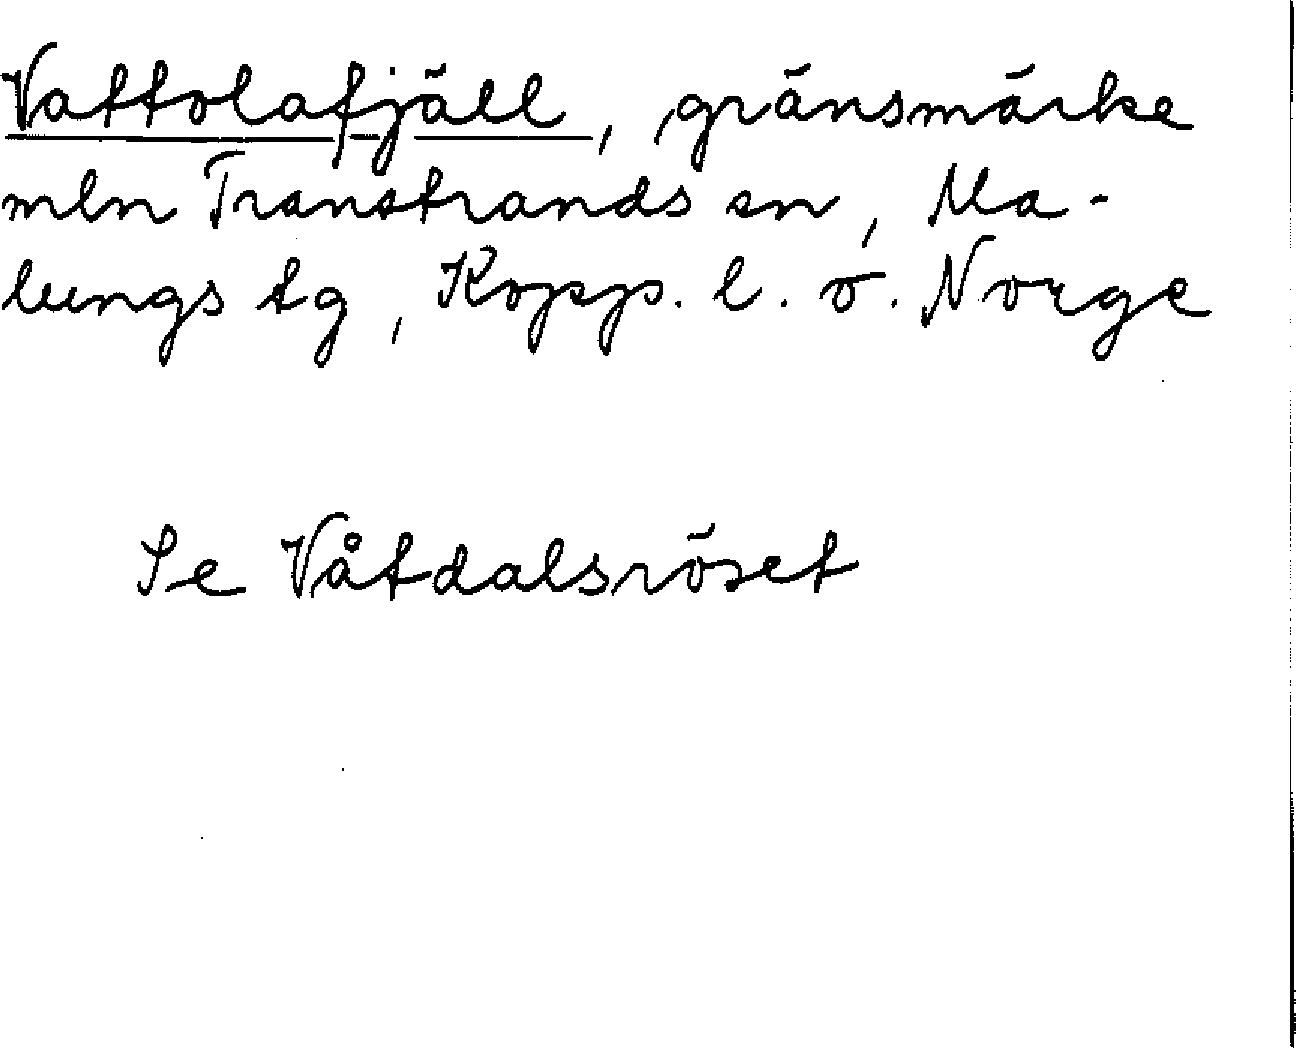 Vattolafjäll, gränsmärke
mln Transtrands sn, Ma-
lungs tg, Kopp. l. o. Norge
Se Våtdalsröset